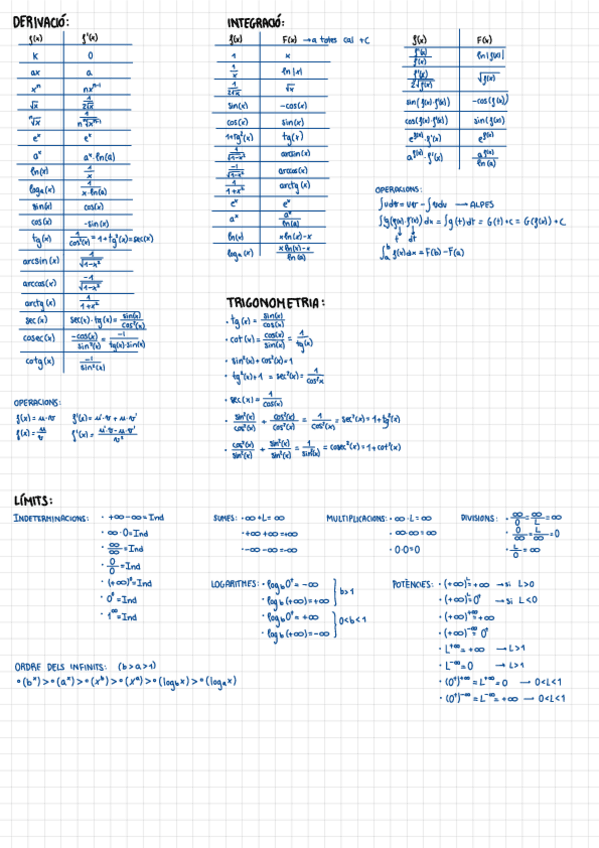 DERIVACIÓ:
f(x) f'(x)
K 0
ax a
xⁿ nxⁿ⁻¹
√x 1/(2√x)
ⁿ√x 1/(n ⁿ√xⁿ⁻¹)
eˣ eˣ
aˣ aˣ·ln(a)
ln(x) 1/x
logₐ(x) 1/(x·ln(a))
sin(x) cos(x)
cos(x) -sin(x)
tg(x) 1/cos²(x) = 1+tg²(x) = sec(x)
arcsin(x) 1/√(1-x²)
arccos(x) -1/√(1-x²)
arctg(x) 1/(1+x²)
sec(x) sec(x)·tg(x) = sin(x)/cos²(x)
cosec(x) -cos(x)/sin²(x) = -1/(tg(x)·sin(x))
cotg(x) -1/sin²(x)
OPERACIONS:
f(x) = u·v f'(x) = u'·v + u·v'
f(x) = u/v f'(x) = (u'·v - u·v')/v²
INTEGRACIÓ:
f(x) F(x) → a totes cal +C
1 x
1/x ln|x|
1/(2√x) √x
sin(x) -cos(x)
cos(x) sin(x)
1+tg²(x) tg(x)
1/√(1-x²) arcsin(x)
-1/√(1-x²) arccos(x)
1/(1+x²) arctg(x)
eˣ eˣ
aˣ aˣ/ln(a)
ln(x) x·ln(x)-x
logₐ(x) (x·ln(x)-x)/ln(a)
f(x) F(x)
f'(x)/f(x) ln|f(x)|
f'(x)/(2√f(x)) √f(x)
sin(f(x)·f'(x)) -cos(f(x))
cos(f(x)·f'(x)) sin(f(x))
e^f(x)·f'(x) e^f(x)
a^f(x)·f'(x) a^f(x)/ln(a)
OPERACIONS:
∫udv = uv - ∫vdu → ALPES
∫g(f(x)·f'(x)) dx = ∫g(t) dt = G(t)+C = G(f(x)) + C
t dt
∫ₐᵇ f(x)dx = F(b) - F(a)
TRIGONOMETRIA:
· tg(x) = sin(x)/cos(x)
· cot(x) = cos(x)/sin(x) = 1/tg(x)
· sin²(x) + cos²(x) = 1
· tg²(x)+1 = sec²(x) = 1/cos²x
· sec(x) = 1/cos(x)
· sin²(x)/cos²(x) + cos²(x)/cos²(x) = 1/cos²(x) = sec²(x) = 1+tg²(x)
· cos²(x)/sin²(x) + sin²(x)/sin²(x) = 1/sin²(x) = cosec²(x) = 1+cot²(x)
LÍMITS:
INDETERMINACIONS: · +∞-∞ = Ind
· ∞·0 = Ind
· ∞/∞ = Ind
· 0/0 = Ind
· (+∞)⁰ = Ind
· 0⁰ = Ind
· 1^∞ = Ind
SUMES: · ∞+L = ∞
· +∞+∞ = +∞
· -∞-∞ = -∞
MULTIPLICACIONS: · ∞·L = ∞
· ∞·∞ = ∞
· 0·0 = 0
DIVISIONS: · ∞/0 = ∞/L = ∞
· 0/∞ = L/∞ = 0
· L/0 = ∞
LOGARITMES: · log_b 0⁺ = -∞
· log_b (+∞) = +∞ } b>1
· log_b 0⁺ = +∞
· log_b (+∞) = -∞ } 0<b<1
POTÈNCIES: · (+∞)ᴸ = +∞ → si L>0
· (+∞)ᴸ = 0⁺ → si L<0
· (+∞)^+∞ = +∞
· (+∞)^-∞ = 0⁺
· L^+∞ = +∞ → L>1
· L^-∞ = 0 → L>1
· (0⁺)^+∞ = L^+∞ = 0 → 0<L<1
· (0⁺)^-∞ = L^-∞ = +∞ → 0<L<1
ORDRE DELS INFINITS: (b>a>1)
° (bˣ) > ° (aˣ) > ° (xᵇ) > ° (xᵃ) > ° (log_b x) > ° (logₐx)